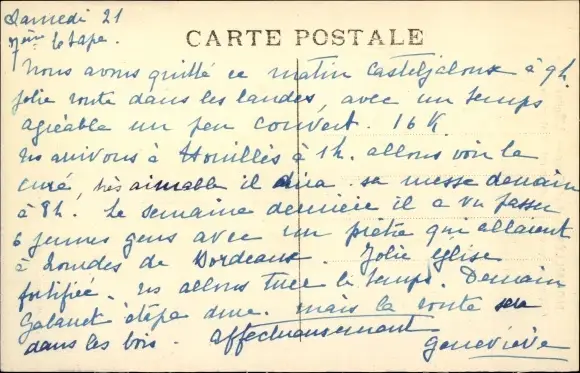 Samedi 21
7ème Etape.
CARTE POSTALE
Nous avons quitté ce matin Casteljaloux à 9h.
jolie route dans les landes, avec un temps
agréable un peu couvert. 16 K.
ns arrivons à Houillès à 1h. allons voir le
curé, très aimable il dira sa messe demain
à 8h. Le semaine dernière il a vu passer
6 jeunes gens avec un prêtre qui allaient
à Lourdes de Bordeaux. Jolie église
fortifiée. ns allons tuer le temps. Demain
Gabarret étape dure. mais la route sera
dans les bois. affectueusement
Geneviève